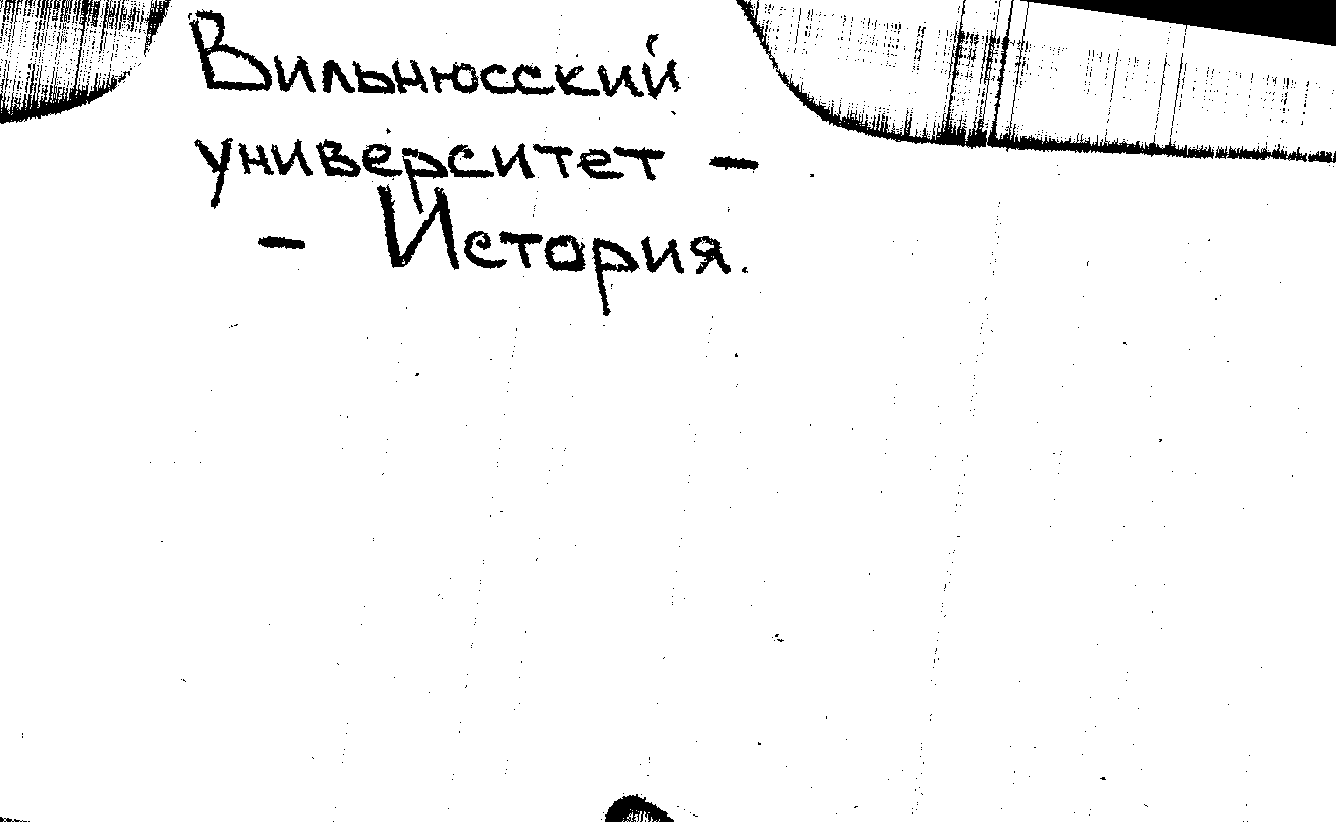 Вильнюсский
университет -
- История.